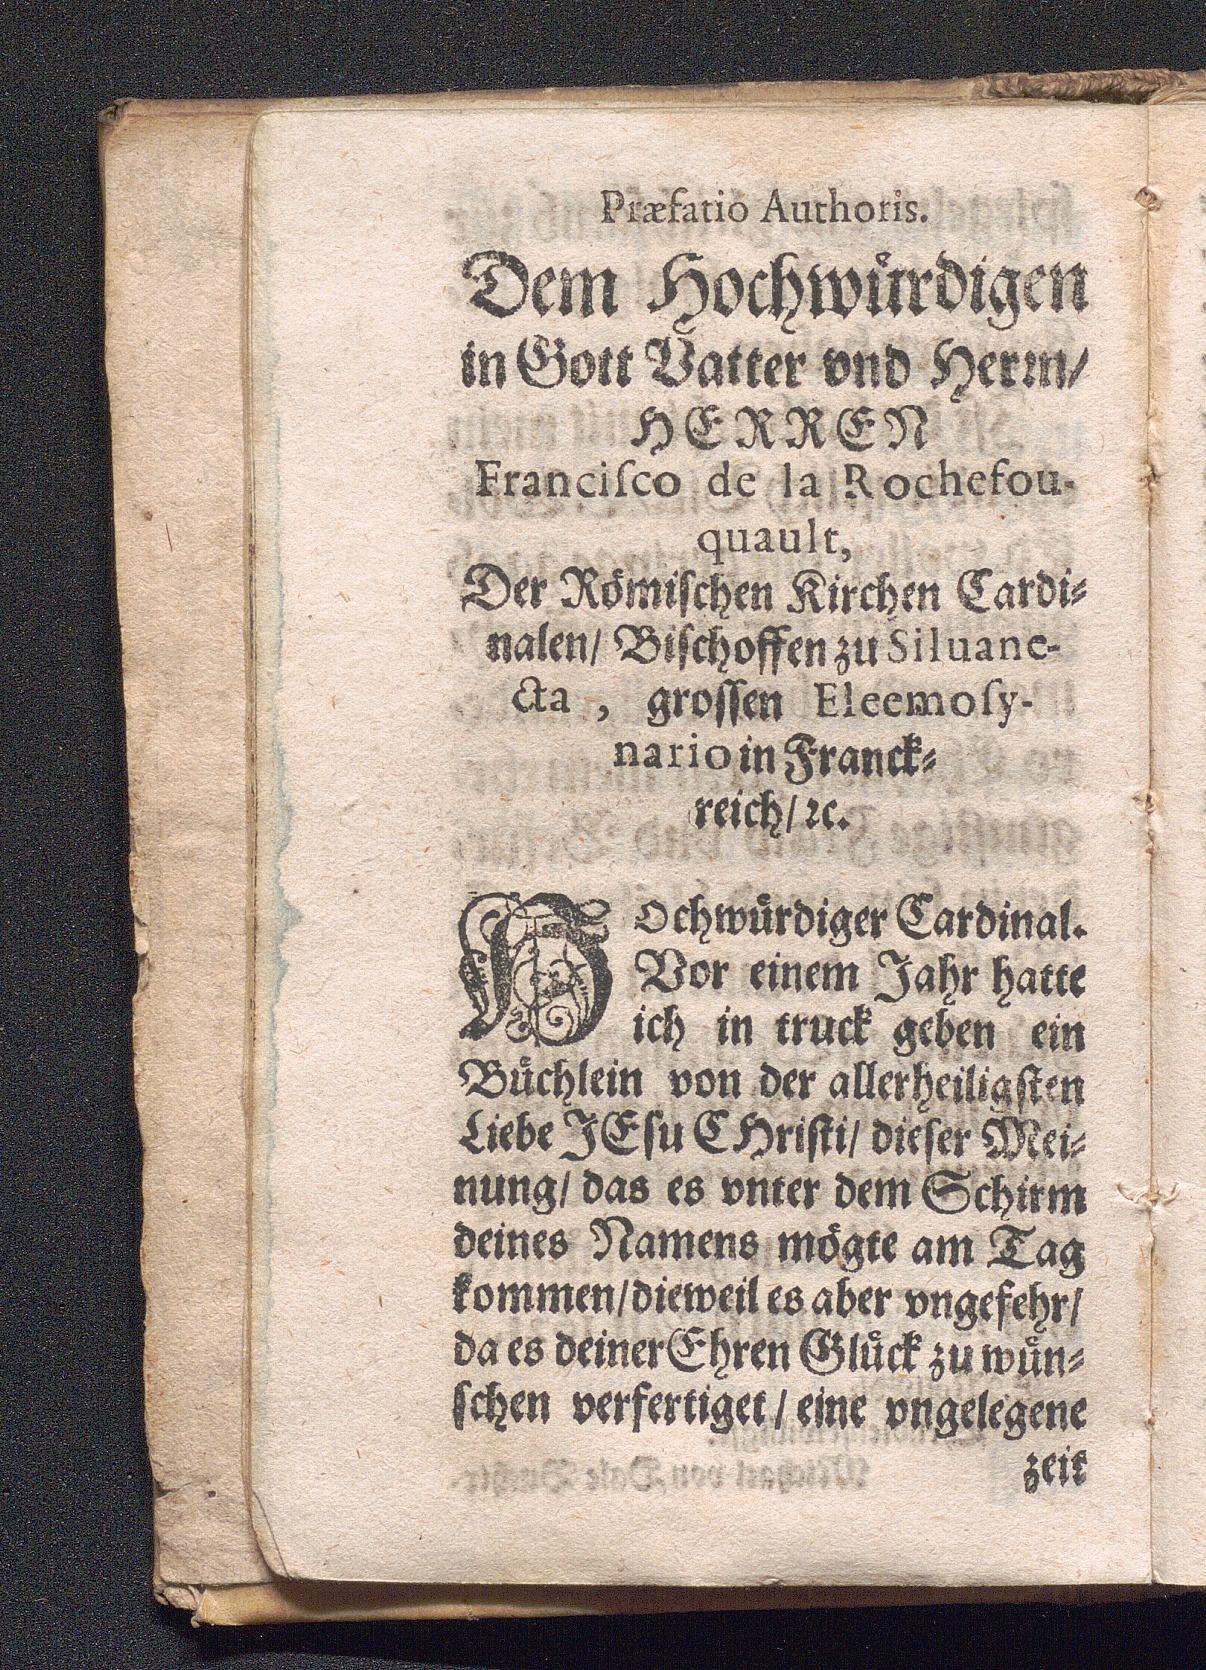 Præfatio Authoris.
Dem Hochwuͤrdigen
in Gott Vatter vnd Herrn/
HERREN
Franciſco de la Rochefou-
quault,
Der Roͤmiſchen Kirchen Cardi⸗
nalen/ Biſchoffen zu Siluane-
cta, groſſen Eleemoſy-
nario in Franck⸗
reich/ ꝛc.
HOchwuͤrdiger Cardinal.
Vor einem Jahr hatte
ich in truck geben ein
Buͤchlein von der allerheiligſten
Liebe JEſu CHriſti/ dieſer Mei⸗
nung/ das es vnter dem Schirm
deines Namens moͤgte am Tag
kommen/ dieweil es aber vngefehr/
da es deiner Ehren Gluͤck zu wuͤn⸗
ſchen verfertiget/ eine vngelegene
zeit